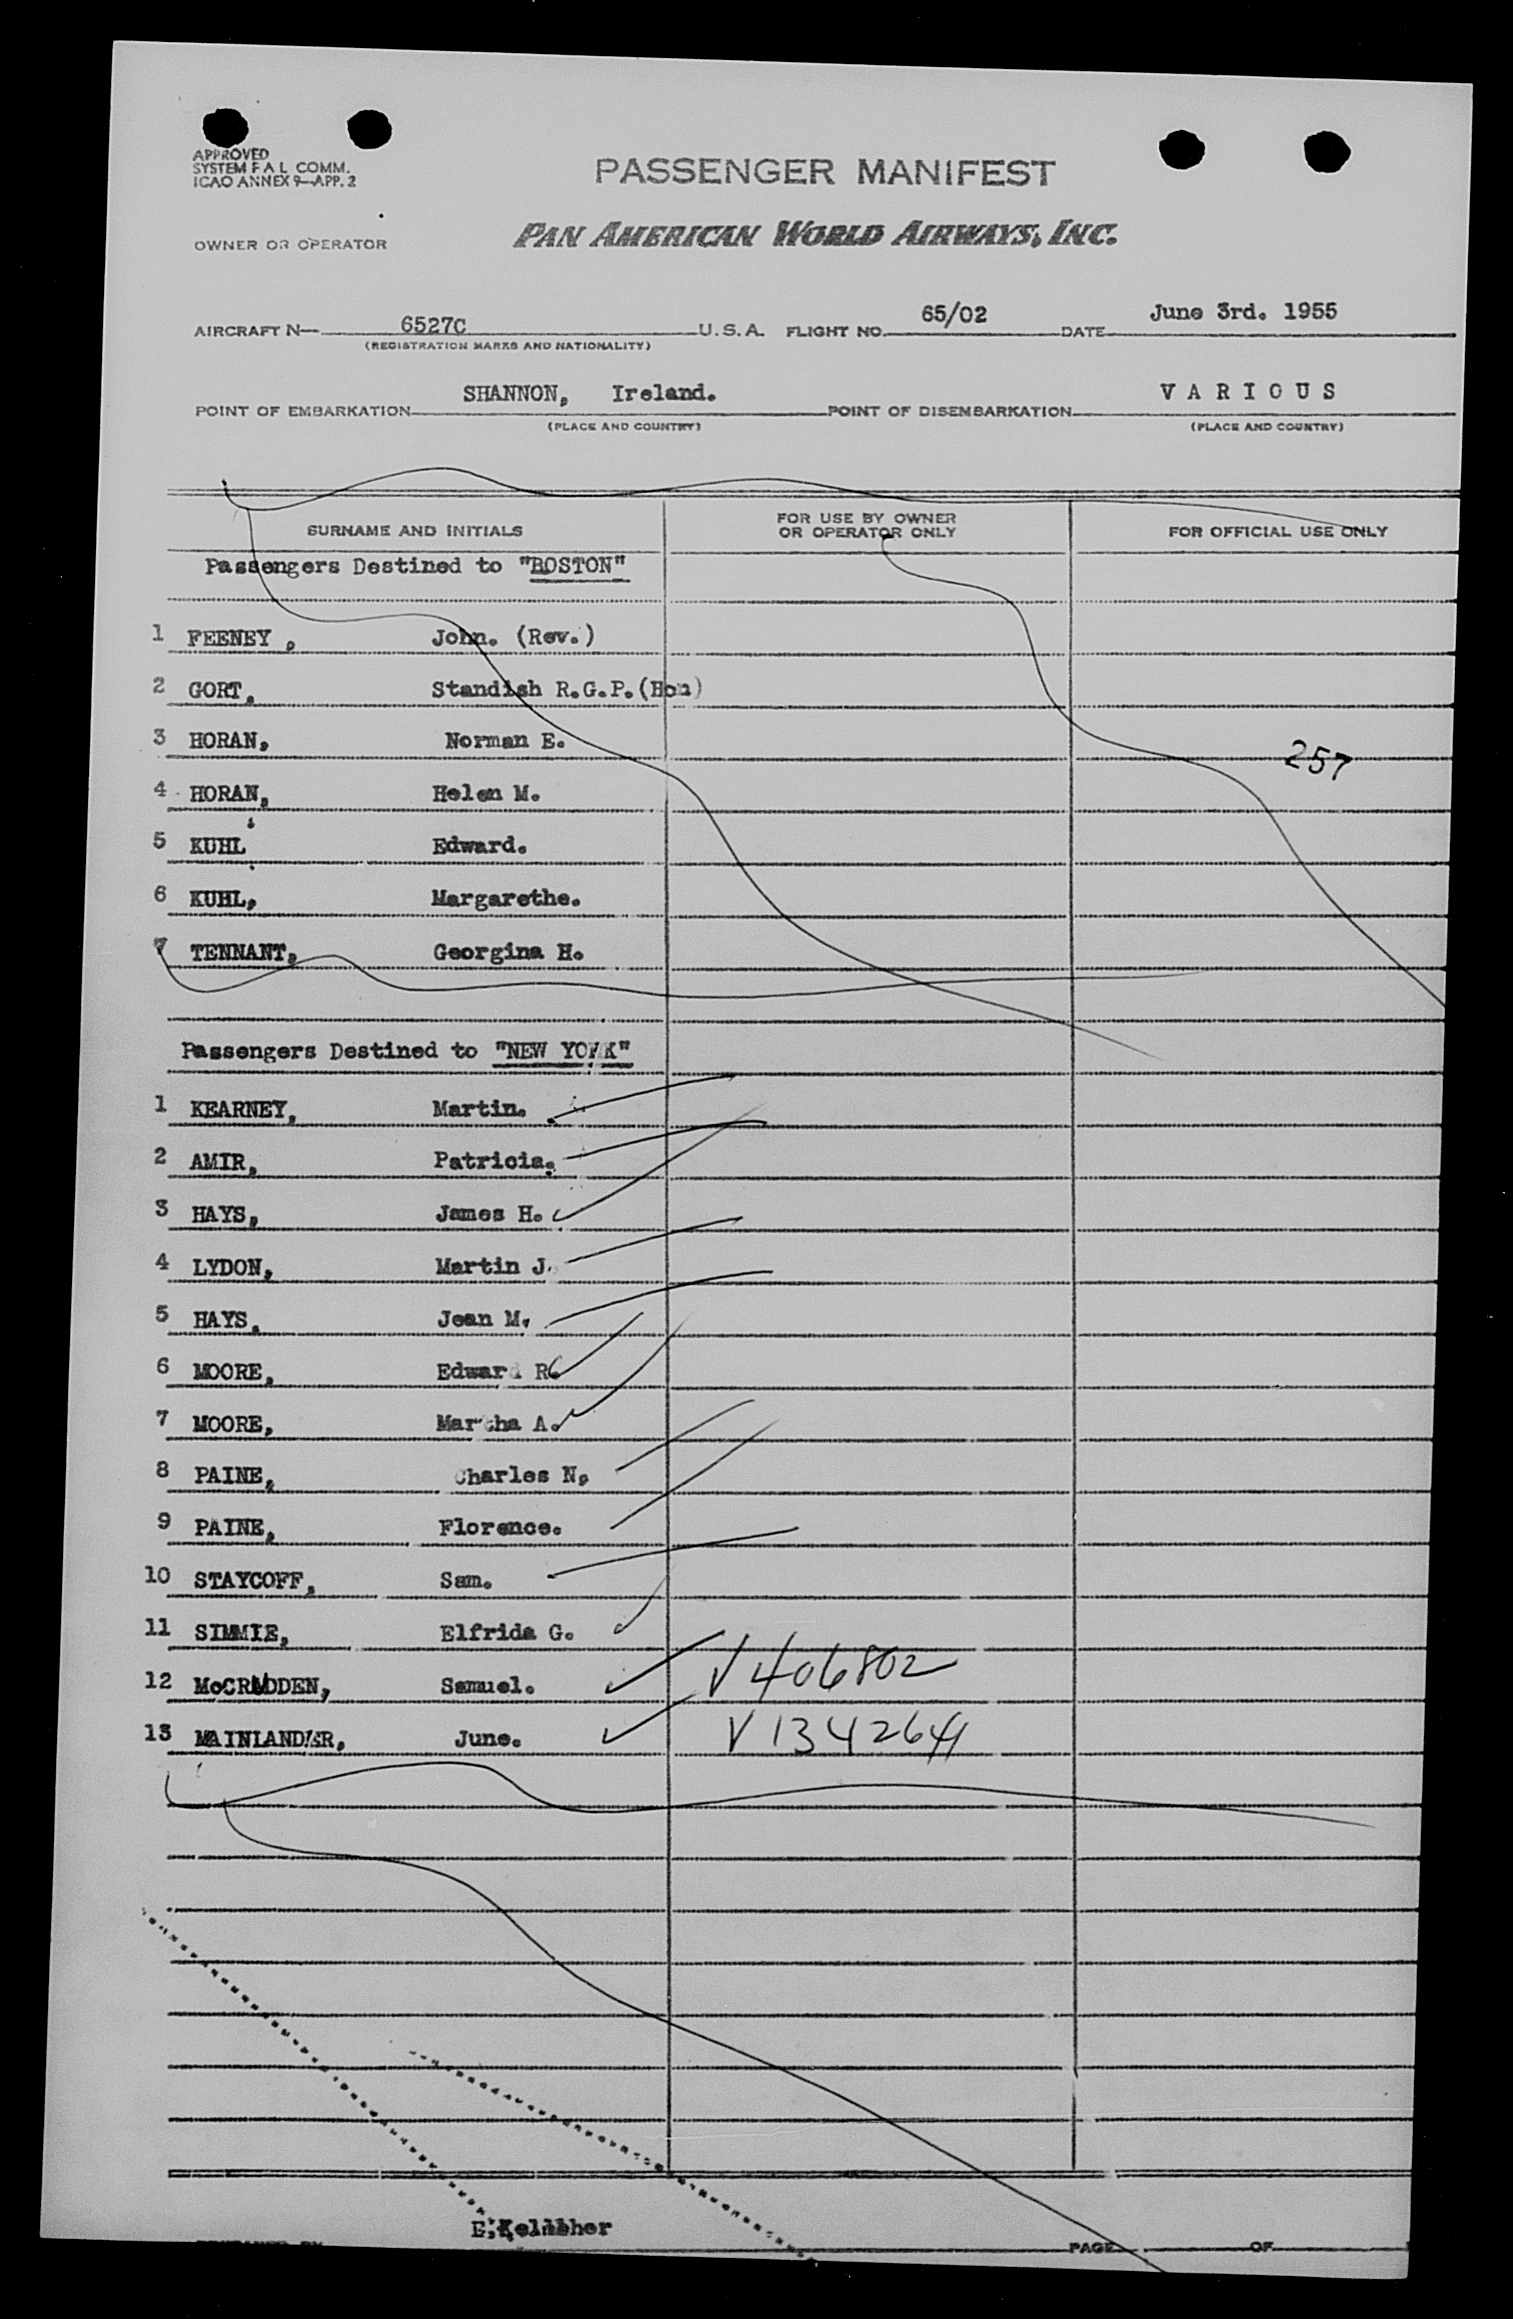 APPROVED
SYSTEM F A L COMM.
ICAO ANNEX 9—APP. 2
PASSENGER MANIFEST
OWNER OR OPERATOR PAN AMERICAN WORLD AIRWAYS, INC.
AIRCRAFT N— 6527C U.S.A. FLIGHT NO. 65/02 DATE June 3rd. 1955
(REGISTRATION MARKS AND NATIONALITY)
POINT OF EMBARKATION SHANNON, Ireland. POINT OF DISEMBARKATION V A R I O U S
(PLACE AND COUNTRY) (PLACE AND COUNTRY)
SURNAME AND INITIALS FOR USE BY OWNER OR OPERATOR ONLY FOR OFFICIAL USE ONLY
Passengers Destined to "BOSTON"
1 FEENEY, John. (Rev.)
2 GORT, Standish R.G.P.(Hon)
3 HORAN, Norman E. 257
4 HORAN, Helen M.
5 KUHL Edward.
6 KUHL, Margarethe.
7 TENNANT, Georgina H.
Passengers Destined to "NEW YORK"
1 KEARNEY, Martin.
2 AMIR, Patricia.
3 HAYS, James H.
4 LYDON, Martin J.
5 HAYS, Jean M.
6 MOORE, Edward R.
7 MOORE, Martha A.
8 PAINE, Charles N.
9 PAINE, Florence.
10 STAYCOFF, Sam.
11 SIMMIE, Elfrida G.
12 McCRUDDEN, Samuel. V 406802
13 MAINLANDER, June. V 1342641
E. Kelleher
PAGE OF